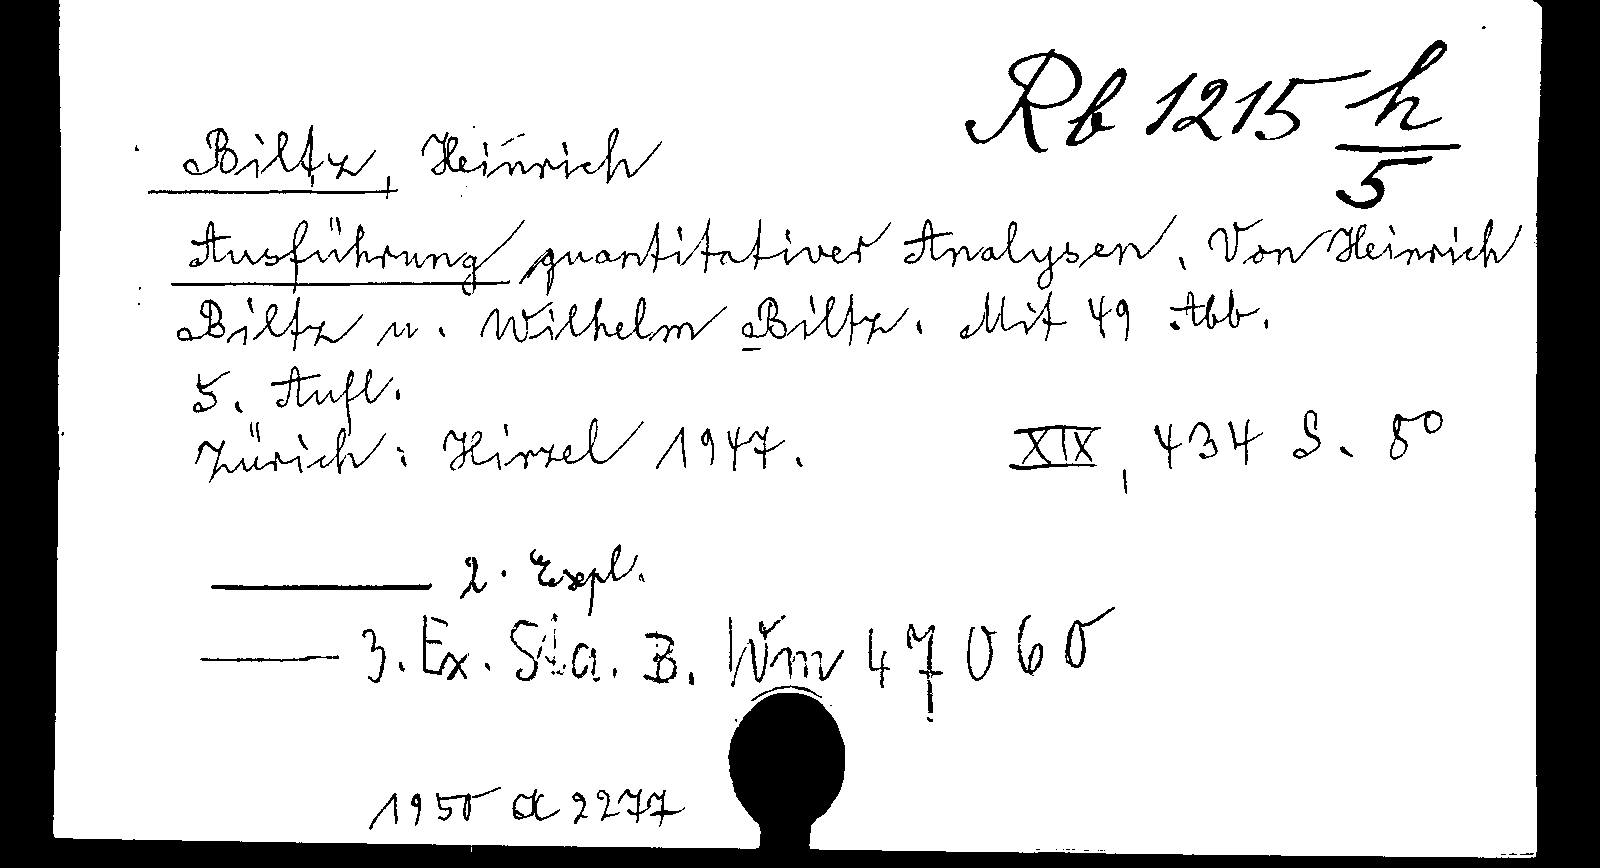 Rb 1215 h/5
Biltz, Heinrich
Ausführung quantitativer Analysen. Von Heinrich
Biltz u. Wilhelm Biltz. Mit 49 Abb.
5. Aufl.
Zürich: Hirzel 1947. XIX, 434 S. 8°
2. Expl.
3. Ex. Sta. B. Wm 47060
1950 A 2277